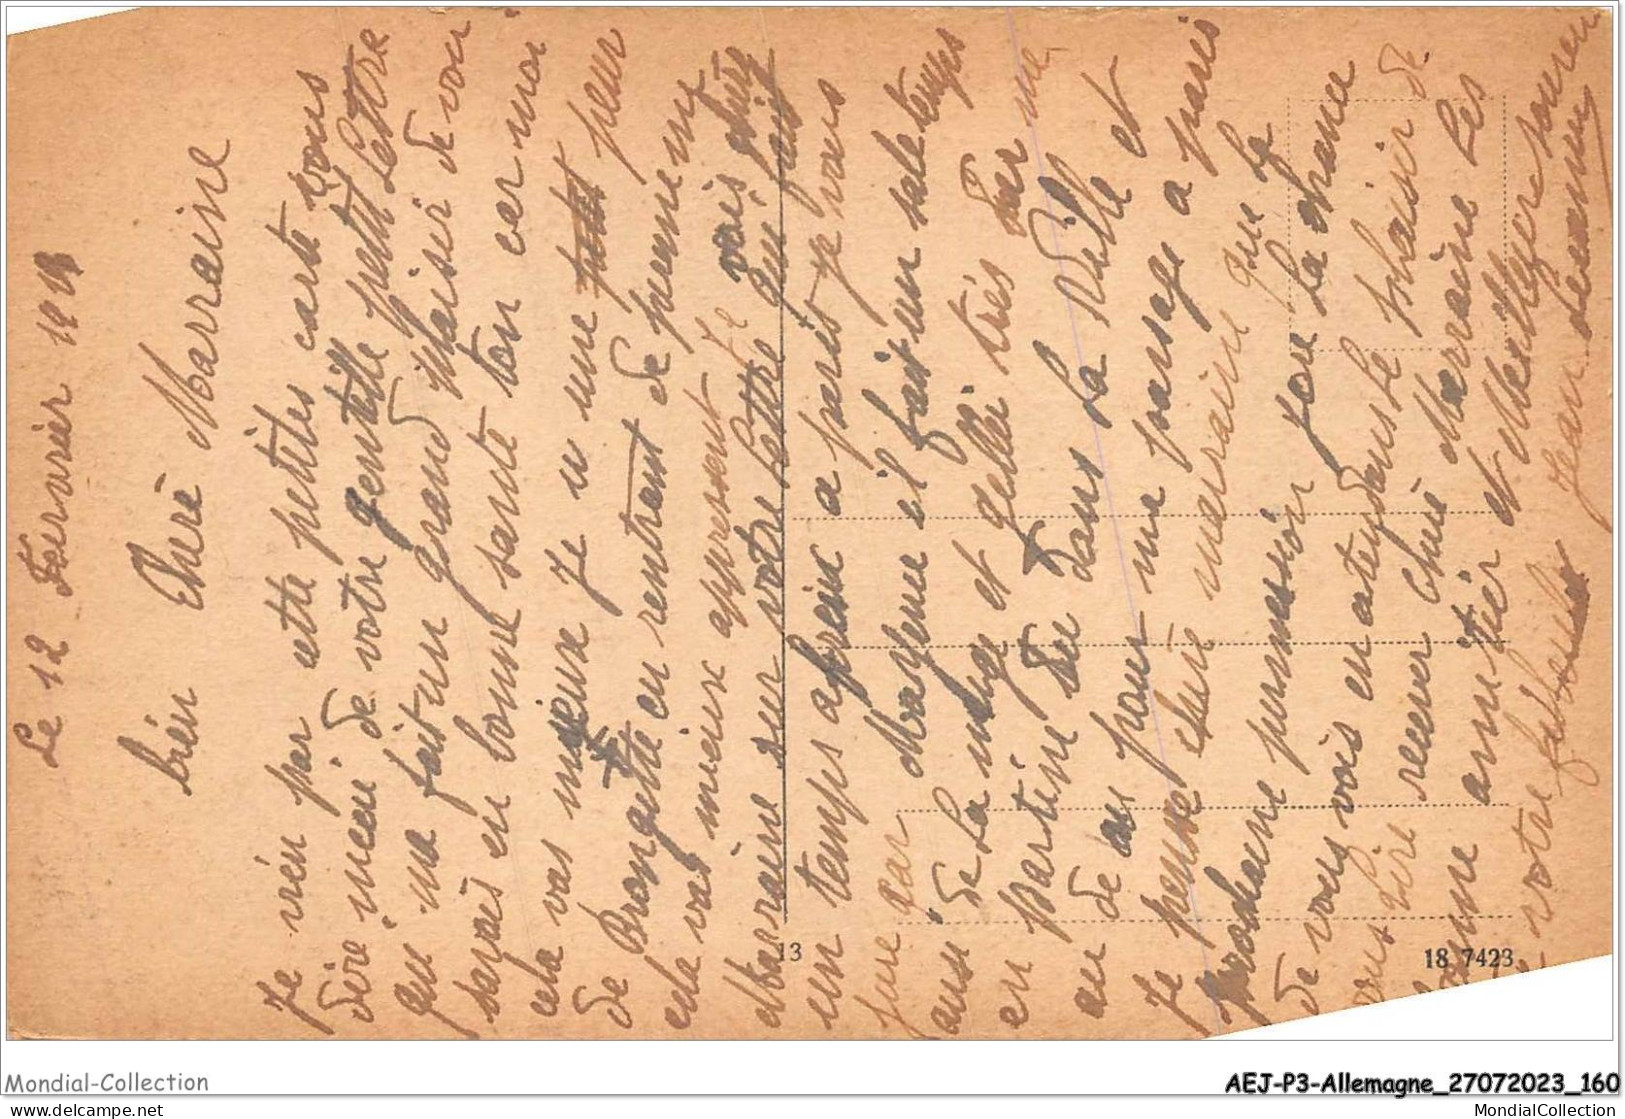 Le 12 Fervrier 191
bien Cheré Marraine
Je vien par cette petites carte vous
dire merci de votre gentille petit Lettre
qui ma fait un grand plaisir de voir
en bonne santé ton car moi
cela vas mieux Je u une peur
de Brongette en rentrent de
cela vas mieux appresent Je vais chére
Marraine sur votre Lettre qui fait
un temps afreux a paris je vous
jure par Mayeme il fait un sale temps
ausi de La neige et gelle trés dur
en partine du dans La Ville et
au de pour une passage a paris
Je pense chére marraine que La
prochaine permession jore La chance
de vous vois en atendant Le plaisir de
vous Lire recever chére Marraine Les
amitiér et Meillere souvenir
votre filleul Jean
13
18 7423
Mondial-Collection
AEJ-P3-Allemagne_27072023_160
www.delcampe.net
MondialCollection